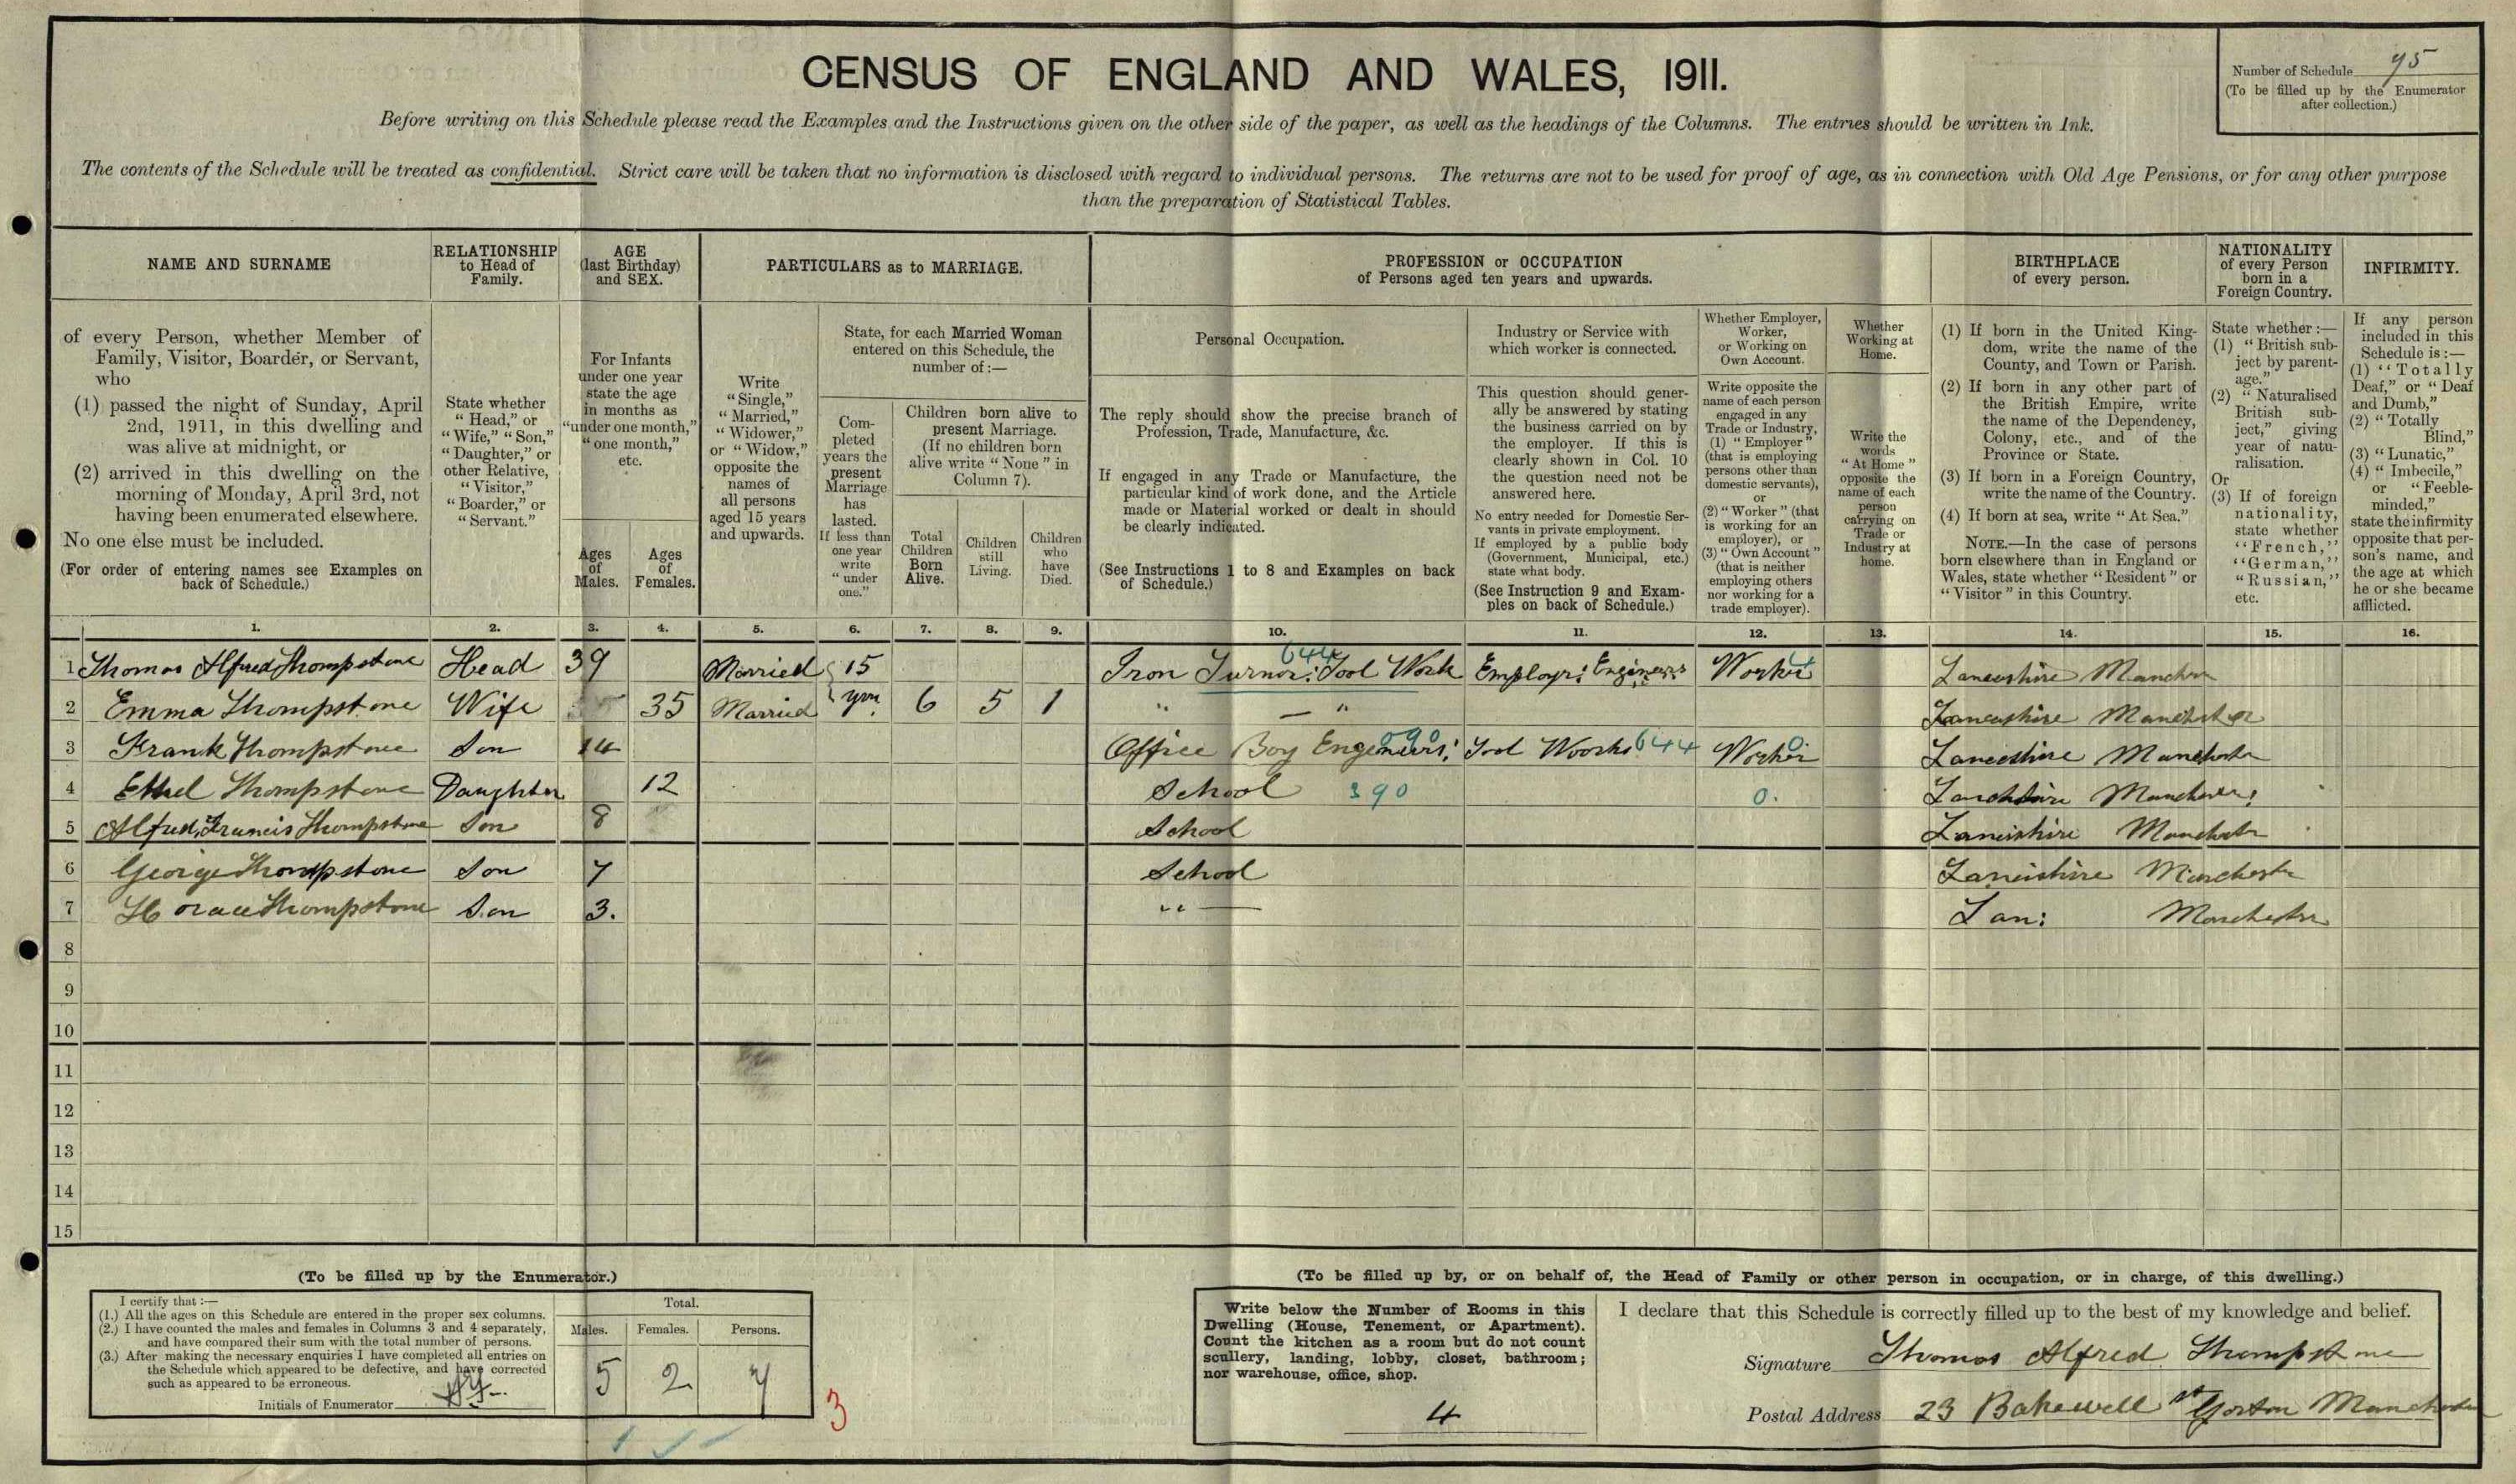 CENSUS OF ENGLAND AND WALES, 1911.
Number of Schedule 95
(To be filled up by the Enumerator
after collection.)
Before writing on this Schedule please read the Examples and the Instructions given on the other side of the paper, as well as the headings of the Columns. The entries should be written in Ink.
The contents of the Schedule will be treated as confidential. Strict care will be taken that no information is disclosed with regard to individual persons. The returns are not to be used for proof of age, as in connection with Old Age Pensions, or for any other purpose
than the preparation of Statistical Tables.
NAME AND SURNAME
of every Person, whether Member of
Family, Visitor, Boarder, or Servant,
who
(1) passed the night of Sunday, April
2nd, 1911, in this dwelling and
was alive at midnight, or
(2) arrived in this dwelling on the
morning of Monday, April 3rd, not
having been enumerated elsewhere.
No one else must be included.
(For order of entering names see Examples on
back of Schedule.)
RELATIONSHIP
to Head of
Family.
State whether
"Head," or
"Wife," "Son,"
"Daughter," or
other Relative,
"Visitor,"
"Boarder," or
"Servant."
AGE
(last Birthday)
and SEX.
For Infants
under one year
state the age
in months as
"under one month,"
"one month,"
etc.
Ages
of
Males.
Ages
of
Females.
PARTICULARS as to MARRIAGE.
Write
"Single,"
"Married,"
"Widower,"
or "Widow,"
opposite the
names of
all persons
aged 15 years
and upwards.
State, for each Married Woman
entered on this Schedule, the
number of:—
Com-
pleted
years the
present
Marriage
has
lasted.
If less than
one year
write
"under
one."
Children born alive to
present Marriage.
(If no children born
alive write "None" in
Column 7).
Total
Children
Born
Alive.
Children
still
Living.
Children
who
have
Died.
PROFESSION or OCCUPATION
of Persons aged ten years and upwards.
Personal Occupation.
The reply should show the precise branch of
Profession, Trade, Manufacture, &c.
If engaged in any Trade or Manufacture, the
particular kind of work done, and the Article
made or Material worked or dealt in should
be clearly indicated.
(See Instructions 1 to 8 and Examples on back
of Schedule.)
Industry or Service with
which worker is connected.
This question should gener-
ally be answered by stating
the business carried on by
the employer. If this is
clearly shown in Col. 10
the question need not be
answered here.
No entry needed for Domestic Ser-
vants in private employment.
If employed by a public body
(Government, Municipal, etc.)
state what body.
(See Instruction 9 and Exam-
ples on back of Schedule.)
Whether Employer,
Worker,
or Working on
Own Account.
Write opposite the
name of each person
engaged in any
Trade or Industry,
(1) "Employer"
(that is employing
persons other than
domestic servants),
or
(2) "Worker" (that
is working for an
employer), or
(3) "Own Account"
(that is neither
employing others
nor working for a
trade employer).
Whether
Working at
Home.
Write the
words
"At Home"
opposite the
name of each
person
carrying on
Trade or
Industry at
home.
BIRTHPLACE
of every person.
(1) If born in the United King-
dom, write the name of the
County, and Town or Parish.
(2) If born in any other part of
the British Empire, write
the name of the Dependency,
Colony, etc., and of the
Province or State.
(3) If born in a Foreign Country,
write the name of the Country.
(4) If born at sea, write "At Sea."
NOTE.—In the case of persons
born elsewhere than in England or
Wales, state whether "Resident" or
"Visitor" in this Country.
NATIONALITY
of every Person
born in a
Foreign Country.
State whether:—
(1) "British sub-
ject by parent-
age."
(2) "Naturalised
British sub-
ject," giving
year of natu-
ralisation.
Or
(3) If of foreign
nationality,
state whether
"French,"
"German,"
"Russian,"
etc.
INFIRMITY.
If any person
included in this
Schedule is:—
(1) "Totally
Deaf," or "Deaf
and Dumb,"
(2) "Totally
Blind,"
(3) "Lunatic,"
(4) "Imbecile,"
or "Feeble-
minded,"
state the infirmity
opposite that per-
son's name, and
the age at which
he or she became
afflicted.
1. 2. 3. 4. 5. 6. 7. 8. 9. 10. 11. 12. 13. 14. 15. 16.
644
1 Thomas Alfred Thompstone Head 39 Married 15 Iron Turner: Tool Work Employr: Engineers Worker Lancashire
2 Emma Thompstone Wife 35 Married yrs 6 5 1 " — " Lancashire Manchester
3 Frank Thompstone Son 14 Office Boy Engeneers: 090 Tool Woorks 644 Worker 0. Lancashire Manchester
4 Ethel Thompstone Daughter 12 School 390 0. Manchester
5 Alfred Francis Thompstone Son 8 School Lancishire Manchester
6 George Thompstone Son 7 School Lancishire Manchester
7 Horace Thompstone Son 3. " — Lan: Manchester
8
9
10
11
12
13
14
15
(To be filled up by the Enumerator.)
I certify that:—
(1.) All the ages on this Schedule are entered in the proper sex columns.
(2.) I have counted the males and females in Columns 3 and 4 separately,
and have compared their sum with the total number of persons.
(3.) After making the necessary enquiries I have completed all entries on
the Schedule which appeared to be defective, and have corrected
such as appeared to be erroneous.
Initials of Enumerator
Total.
Males. Females. Persons.
5 2 7
3
(To be filled up by, or on behalf of, the Head of Family or other person in occupation, or in charge, of this dwelling.)
Write below the Number of Rooms in this
Dwelling (House, Tenement, or Apartment).
Count the kitchen as a room but do not count
scullery, landing, lobby, closet, bathroom;
nor warehouse, office, shop.
4
I declare that this Schedule is correctly filled up to the best of my knowledge and belief.
Signature Thomas Alfred Thompstone
Postal Address 23 Bakewell st Gorton Manchester